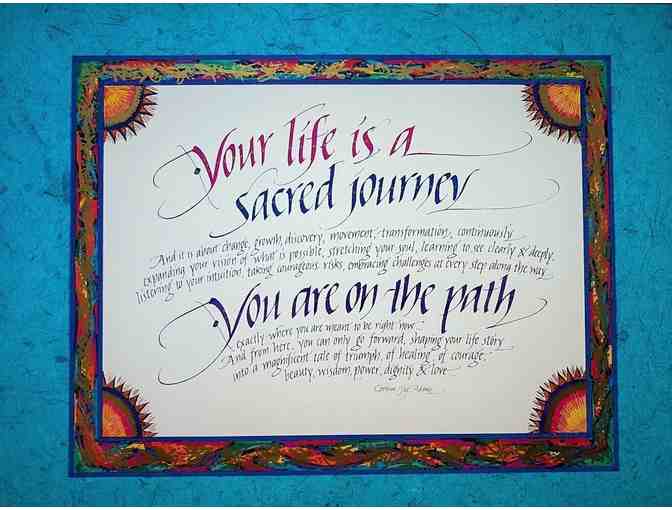 Your life is a
sacred journey
And it is about change, growth, discovery, movement, transformation, continuously
expanding your vision of what is possible, stretching your soul, learning to see clearly & deeply,
listening to your intuition, taking courageous risks, embracing challenges at every step along the way
You are on the path
exactly where you are meant to be right now...
And from here, you can only go forward, shaping your life story
into a magnificent tale of triumph, of healing, of courage,
beauty, wisdom, power, dignity & love
Adams